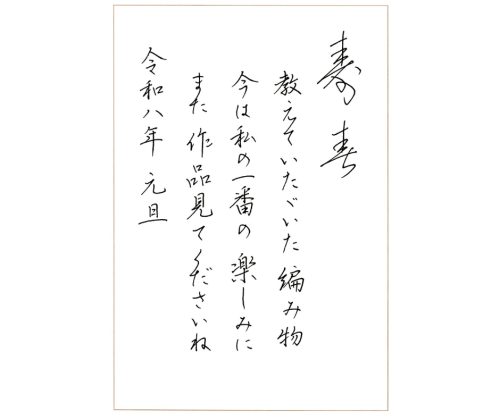 寿春
教えていたゞいた編み物
今は私の一番の楽しみに
また作品見てくださいね
令和八年 元旦